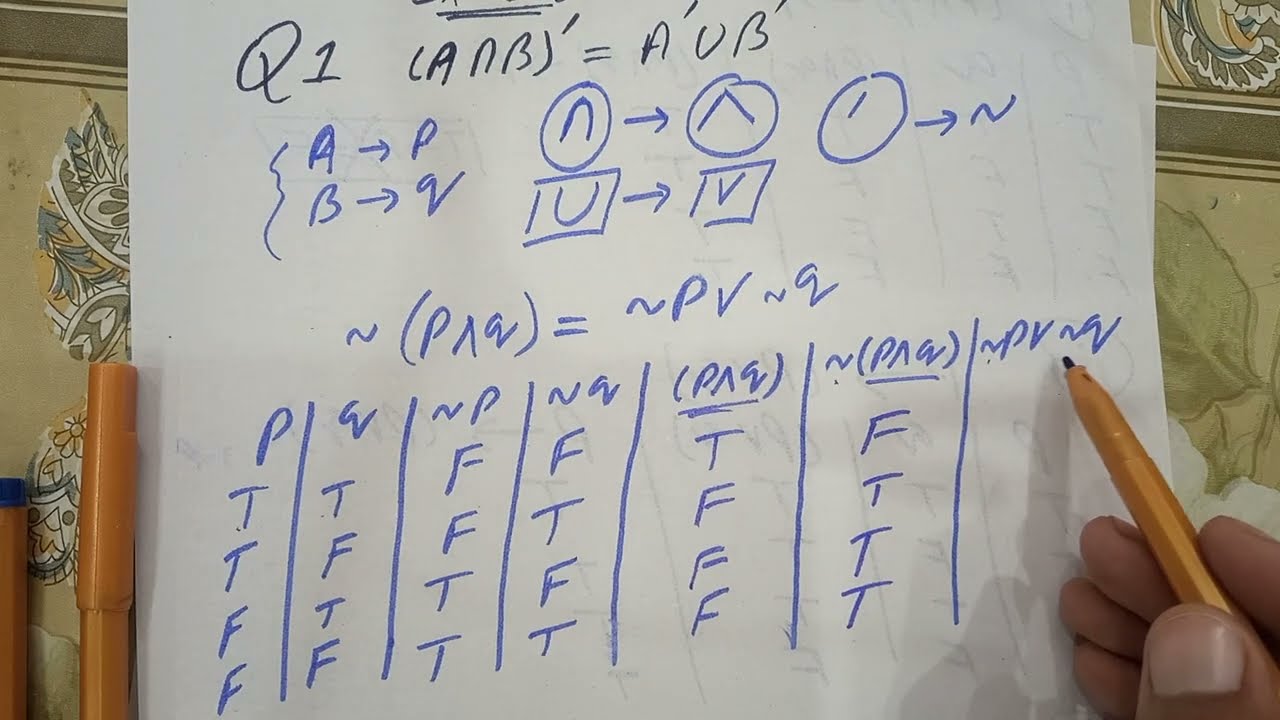 Q1 (A∩B)′ = A′∪B′
A → P ∩ → ∧ ′ → ~
B → q ∪ → ∨
~(P∧q) = ~P∨~q
P q ~P ~q (P∧q) ~(P∧q) ~P∨~q
T T F F T F
T F F T F T
F T T F F T
F F T T F T